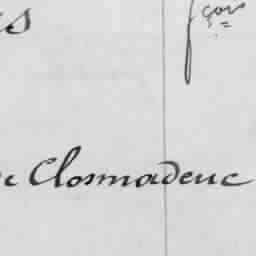 çois
Closmadeuc